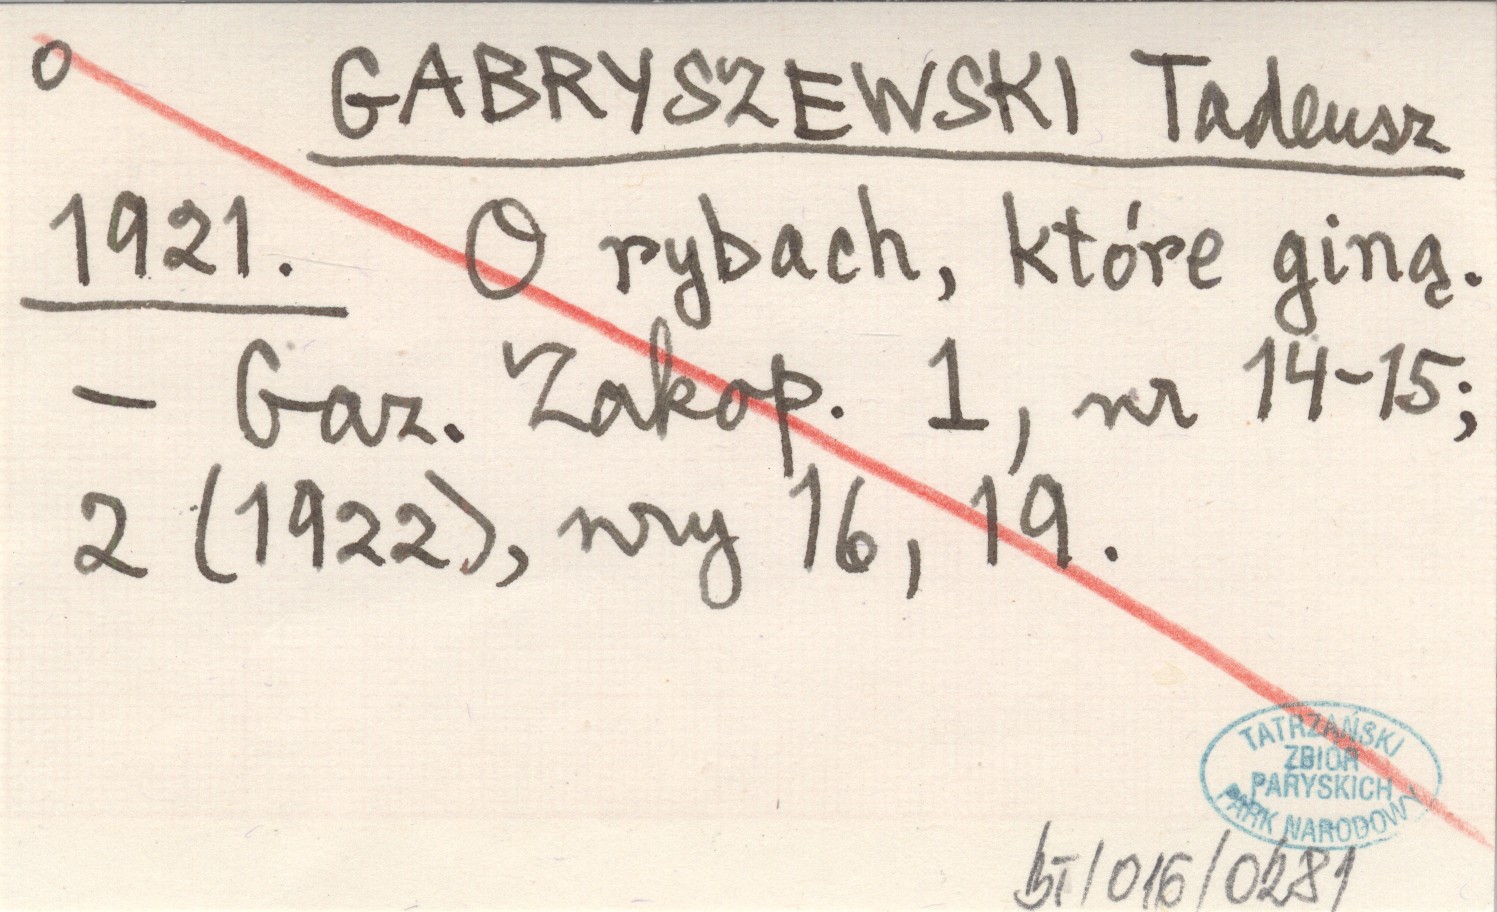 o GABRYSZEWSKI Tadeusz
1921. O rybach, które giną.
– Gaz. Zakop. 1, nr 14-15;
2 (1922), nry 16, 19.
TATRZAŃSKI
ZBIÓR
PARYSKICH
PARK NARODOWY
bT/016/0281